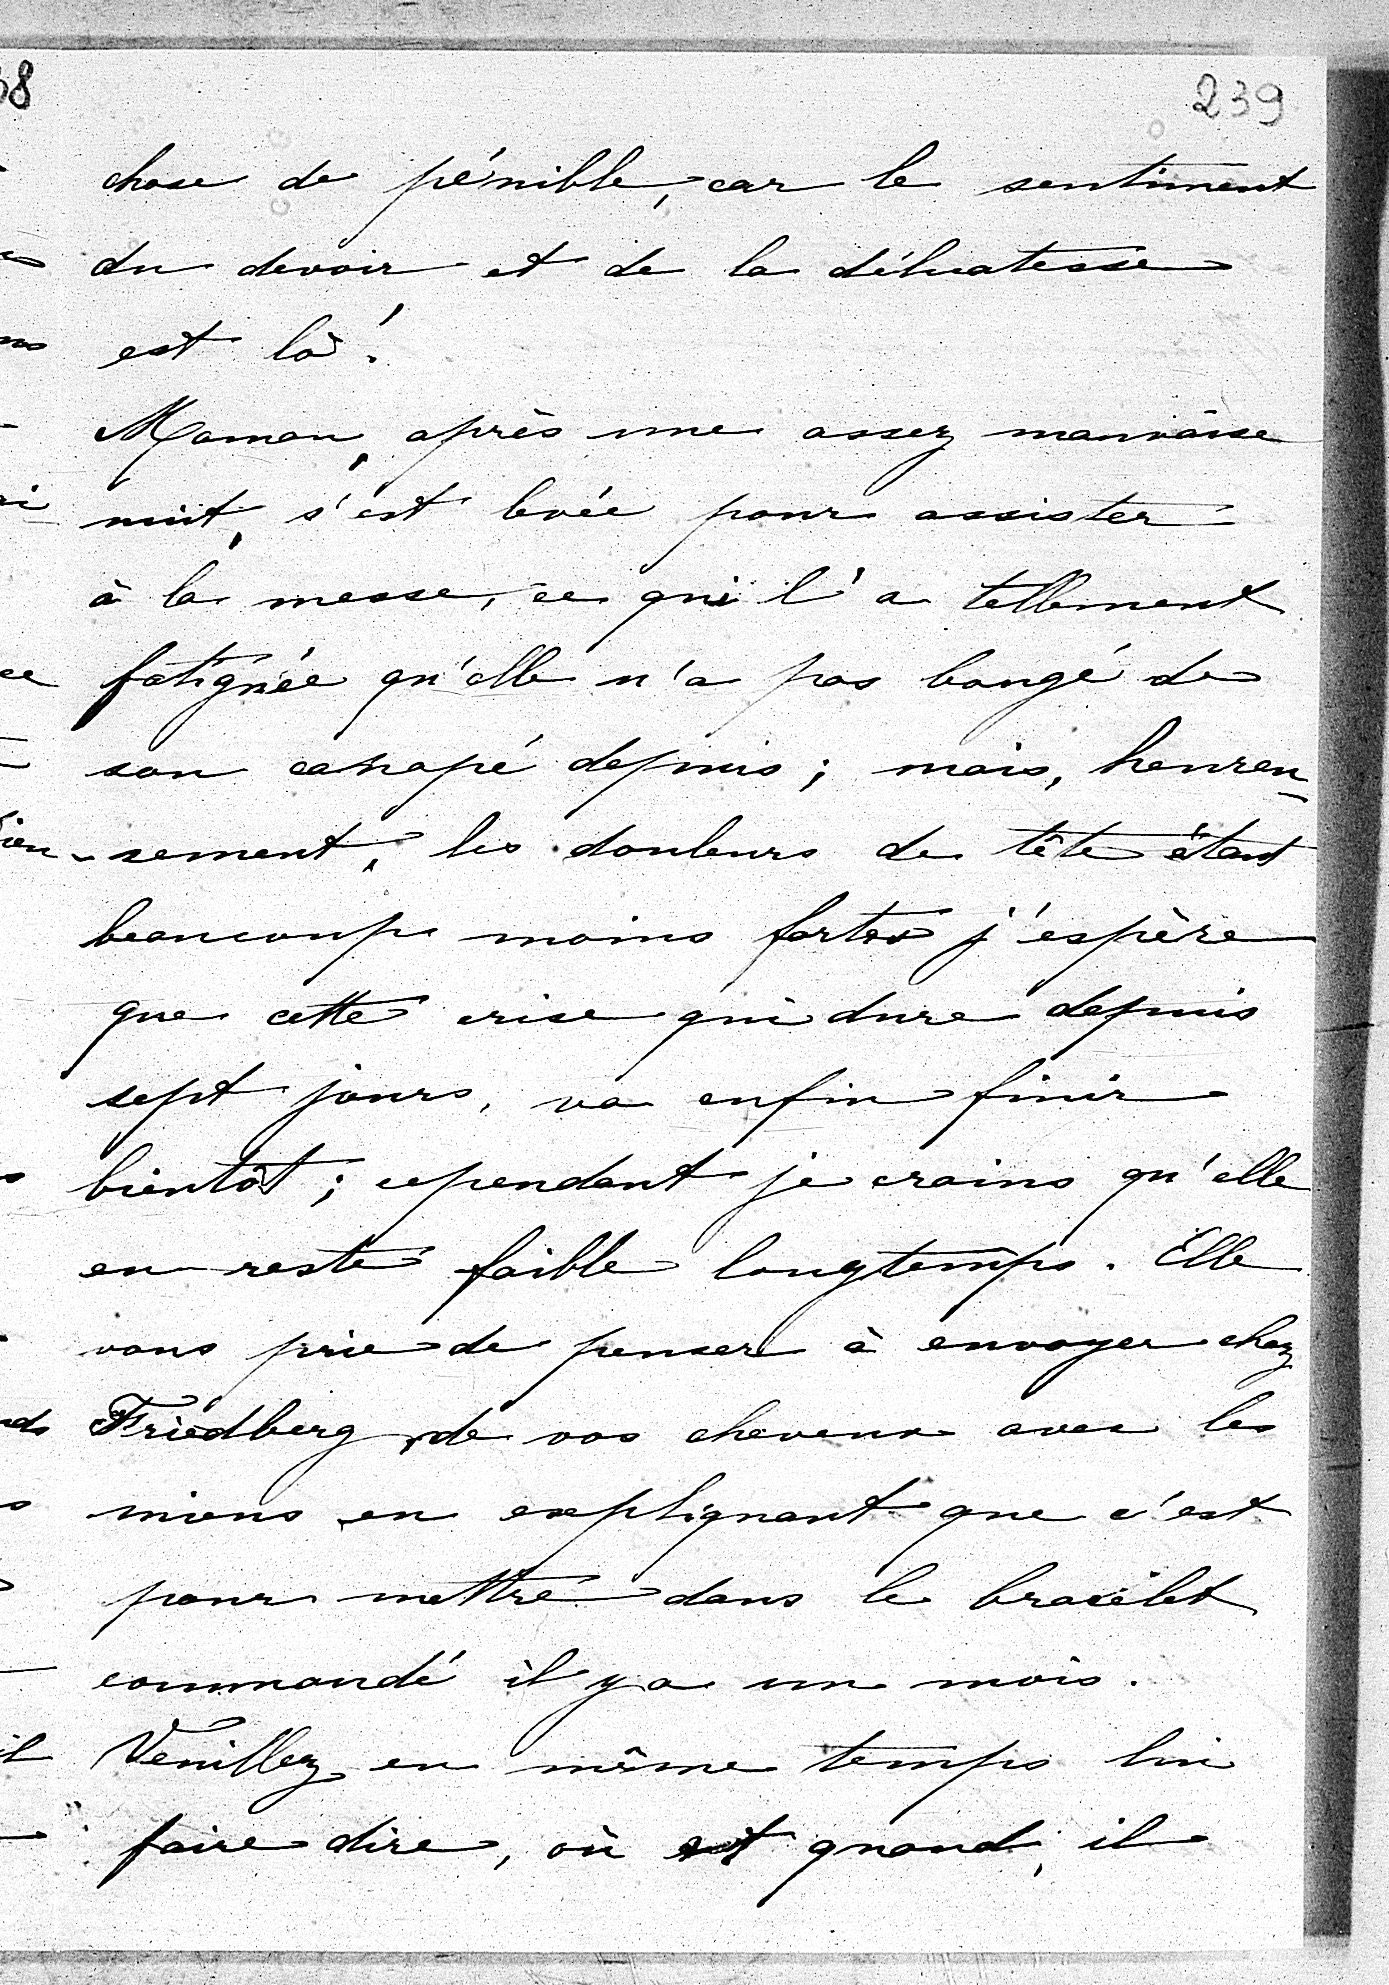 239
chose de pénible, car le sentiment
du devoir et de la délicatesse
est là !
Maman, après une assez mauvaise
nuit, s'est levée pour assister
à la messe, ce qui l'a tellement
fatiguée qu'elle n'a pas bougé de
son canapé depuis ; mais, heureu-
sement, les douleurs de tête étant
beaucoup moins fortes j'espère
que cette crise qui dure depuis
sept jours, va enfin finir
bientôt ; cependant je crains qu'elle
en reste faible longtemps. Elle
vous prie de penser à envoyer chez
Friedberg, de vos cheveux avec les
miens en expliquant que c'est
pour mettre dans le bracelet
commandé il y a un mois.
Veuillez en même temps lui
faire dire, où et quand, il